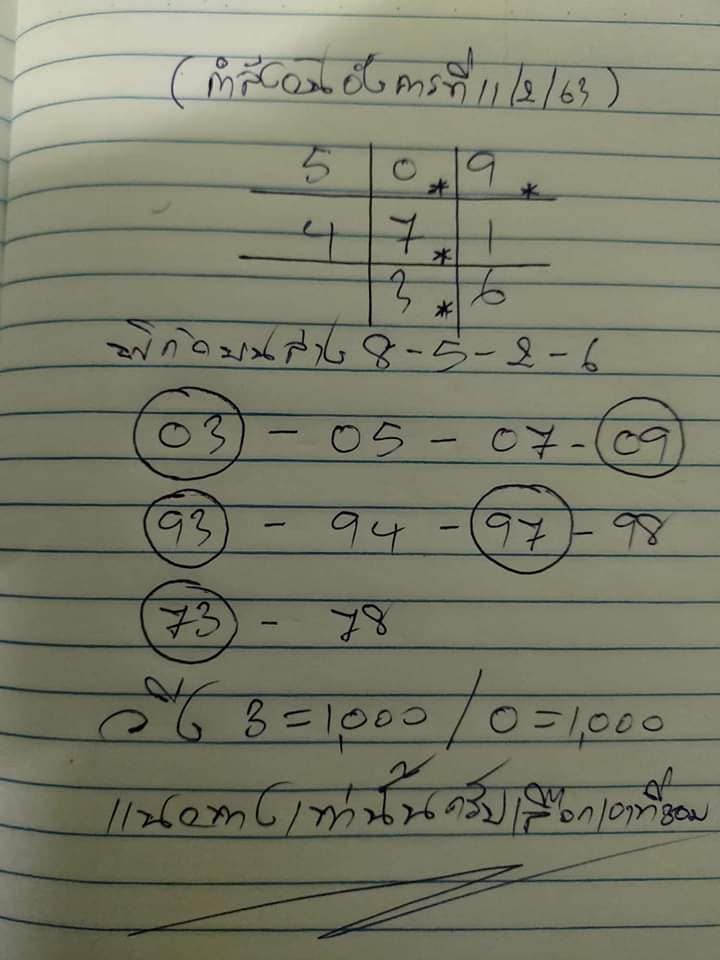 (กำลังวันอังคารที่ 11/2/63)
5 0* 9*
4 7* 1
3* 6
พิกัดบนล่าง 8-5-2-6
03 - 05 - 07 - 09
93 - 94 - 97 - 98
73 - 78
วิ่ง 3=1,000 / 0=1,000
แนวทางเท่านั้นครับเลือกเอาที่ชอบ